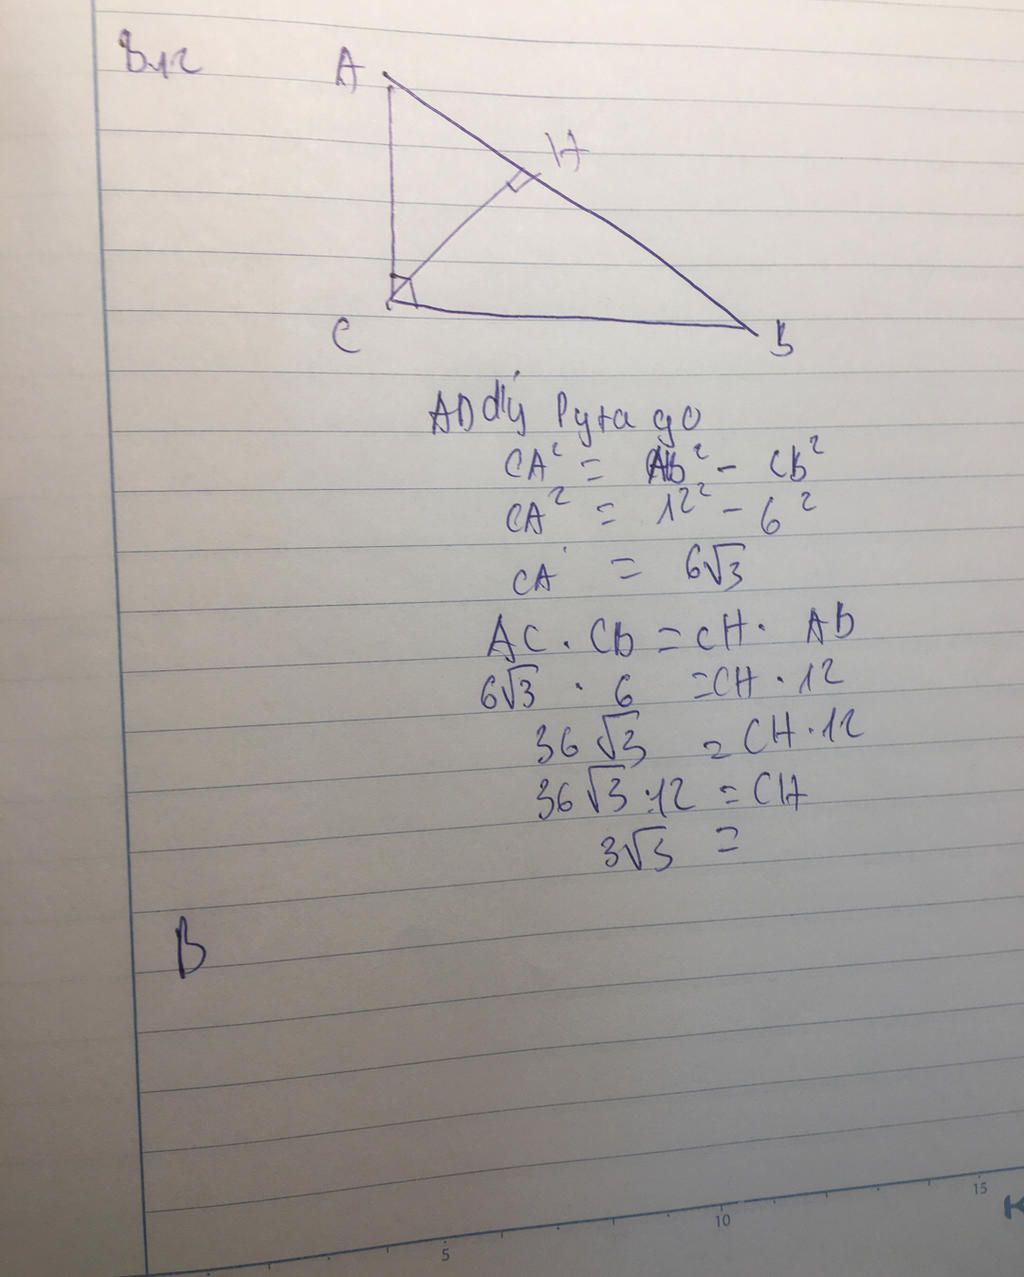 B12
A
H
C
B
AD đlý Pytago
CA² = AB² - CB²
CA² = 12² - 6²
CA = 6√3
AC . CB = CH . AB
6√3 . 6 = CH . 12
36√3 = CH . 12
36√3 : 12 = CH
3√3 =
B
5 10 15
K